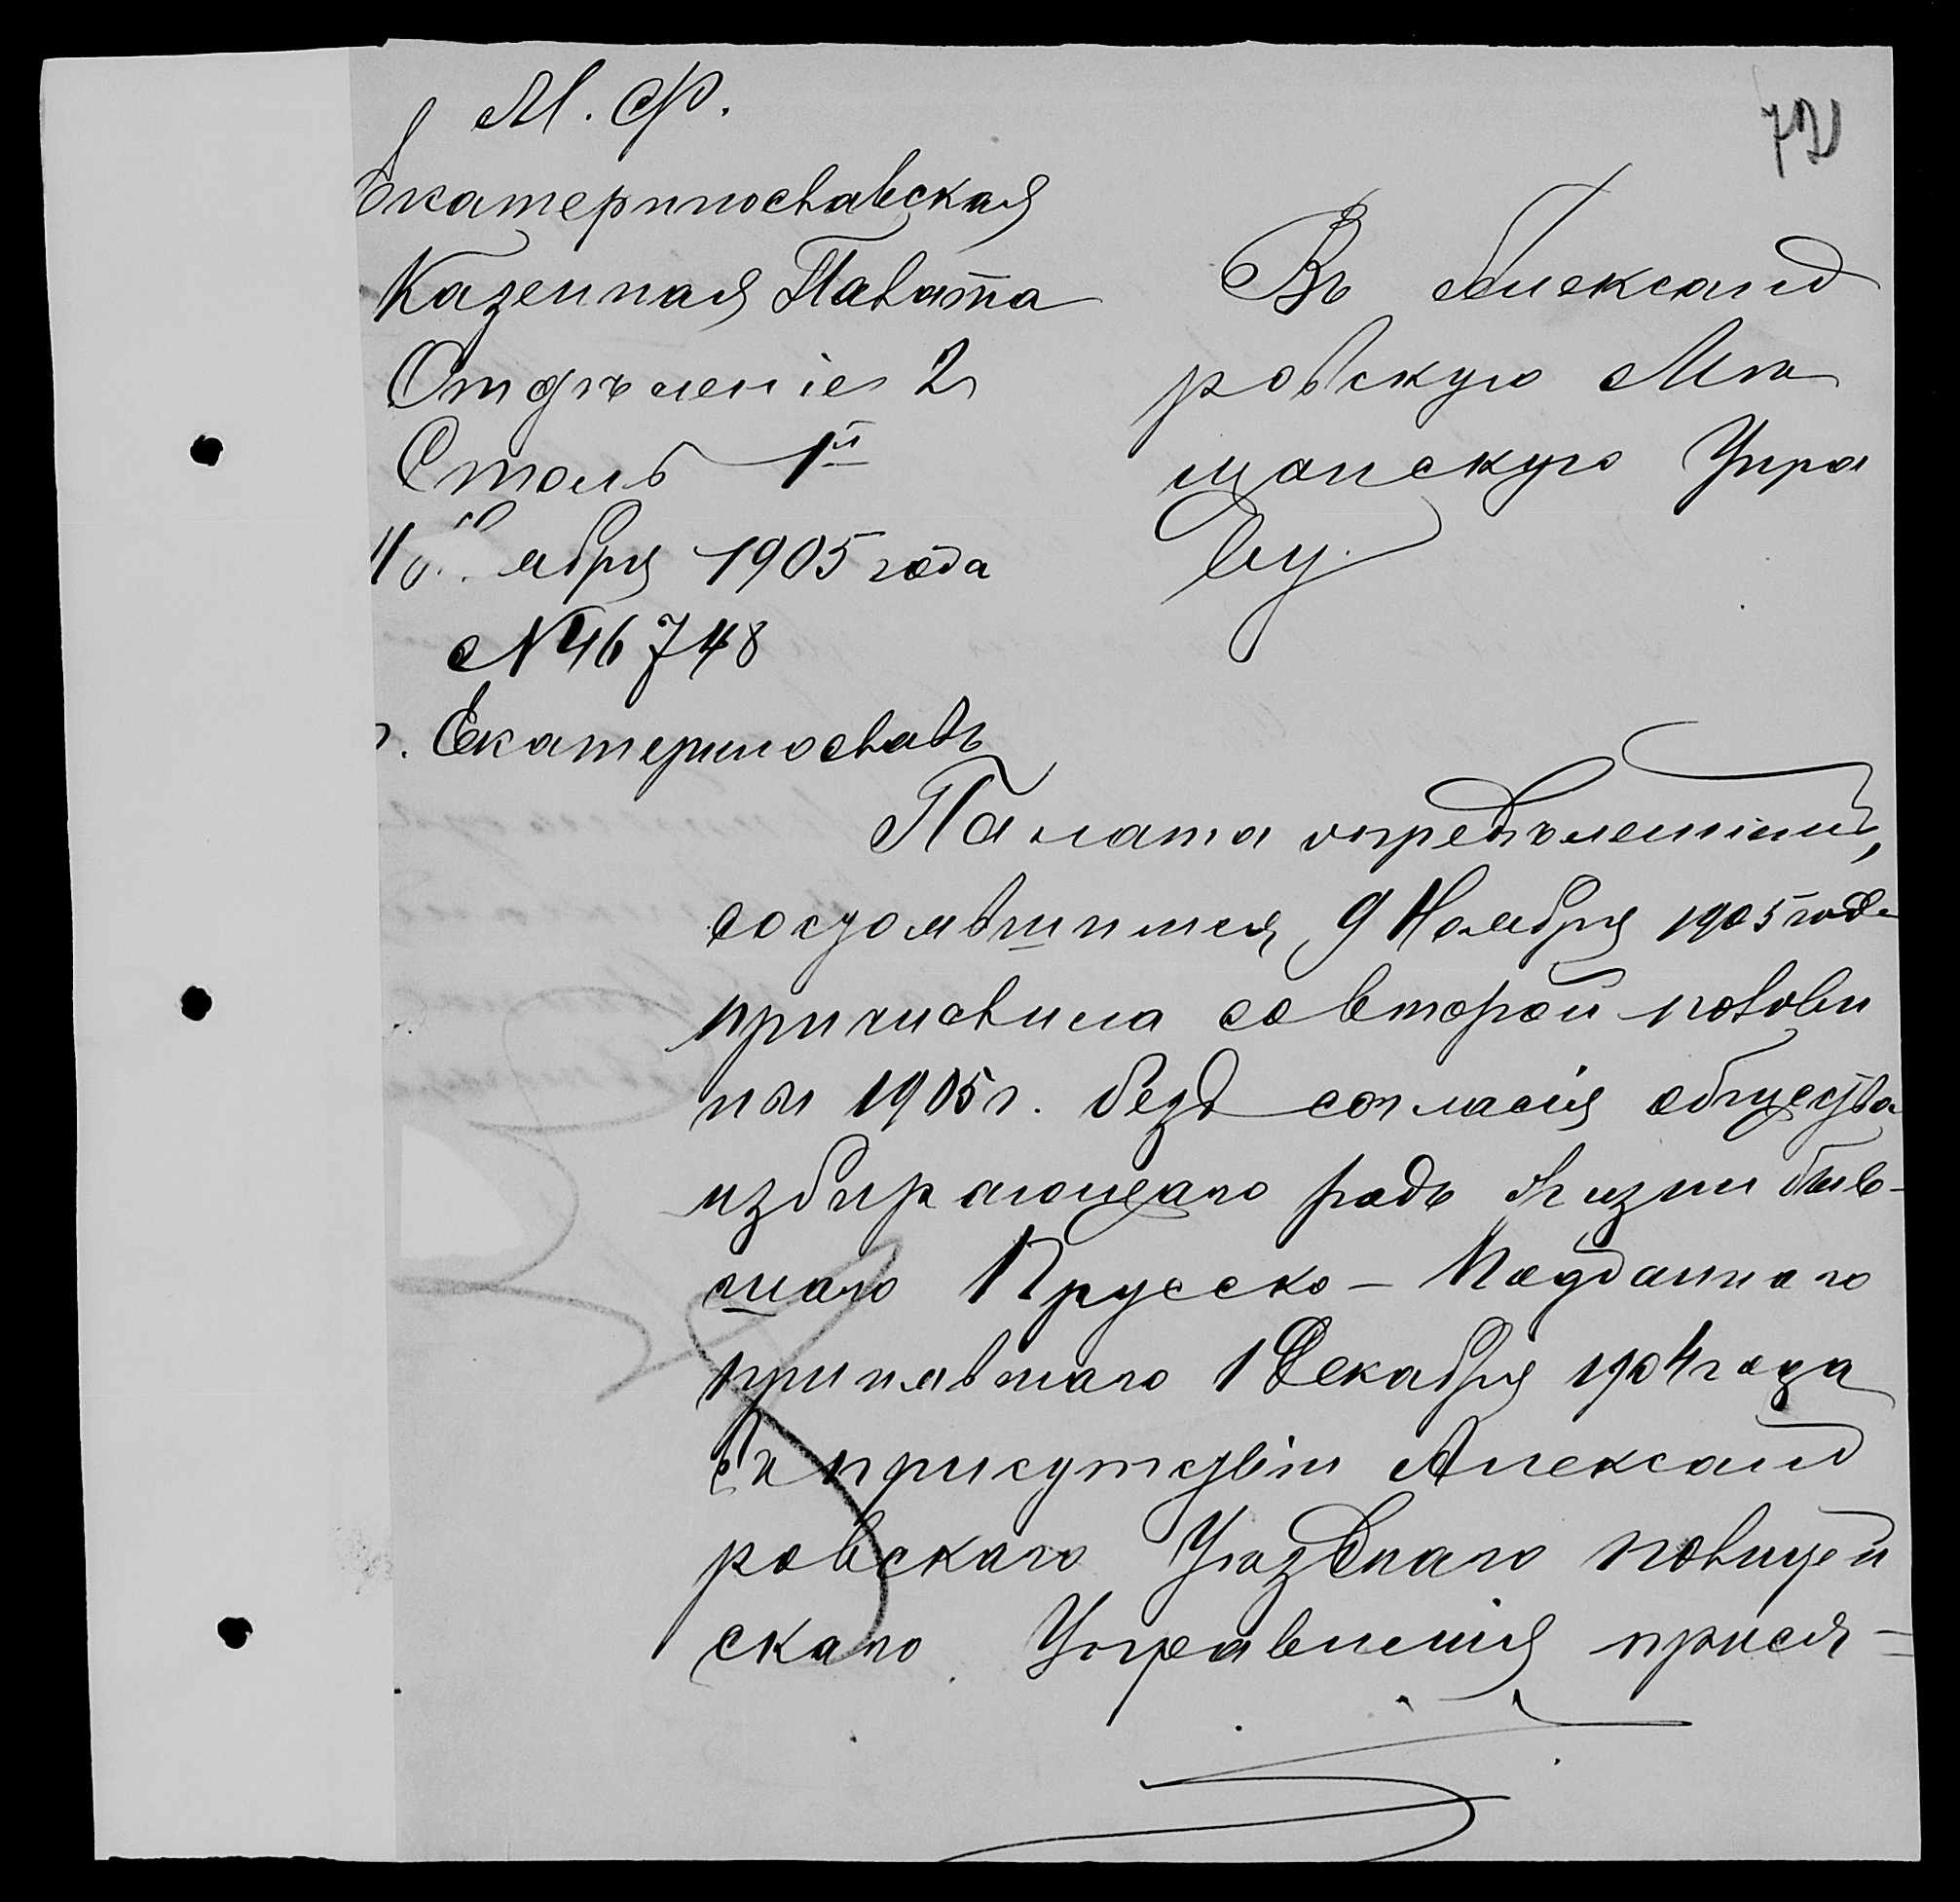 М. Ф.
Екатеринославская
Казенная Палата
Отдѣленіе 2
Столъ 1й
ября 1905 года
№ 46748
г. Екатеринославъ
72
Въ Александ
ровскую Мѣ
щанскую Упра
ву.
Палата опредѣленіемъ,
состоявшимся 9 Ноября 1905 года
причислила со второй полови
ны 1905 г. безъ согласія общества
избирающаго родъ жизни быв-
шаго Прусско-Подданнаго
принявшаго 1 Декабря 1904 года
въ присутствіи Александ
ровскаго Уѣзднаго Полицей
скаго Управленія прися=